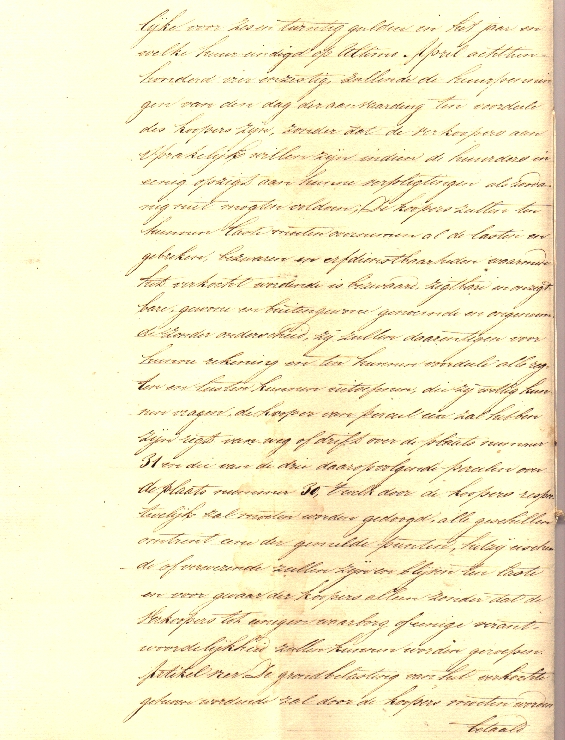 lijke voor zes en twintig gulden in het jaar en
welke huur eindigd op Ultimo April achttien-
honderd vier en zestig, zullende de huurpennin
gen van den dag der aanvaarding ten voordeele
des koopers zijn, zonder dat de verkoopers aan
sprakelijk willen zijn indien de huurders in
eenig opzigt aan hunne verpligtingen als zoda
nig niet mogten voldoen; De koopers zullen ten
hunnen laste moeten overnemen al de lasten en
gebreken, bezwaren en erfdienstbaarheden waarmede
het verkocht wordende is bezwaard, zigtbare en onzigt
bare, gewone en buitengewone genoemde en ongenoem
de zonder onderscheid, zij zullen daarentegen voor
hunne rekening en ten hunnen voordeele alle reg
ten en lusten kunnen uitoefenen, die zij wettig kun
nen vragen, de kooper van perceel een zal hebben
zijn regt van weg of drift over de plaats nummer
31 en die van de drie daaropvolgende percelen over
de plaats nummer 30, 't welk door de koopers respec
tievelijk zal moeten worden gedoogd, alle geschillen
omtrent een der gemelde punten, hetzij eischen
de of verweerende zullen zijn en blijven ten laste
en voor gevaar der koopers alleen zonder dat de
verkoopers tot eenigen waarborg of eenige verant-
woordelijkheid zullen kunnen worden geroepen.
Artikel vier. De grondbelasting van het verkochte
geheven wordende zal door de koopers moeten worden
betaald